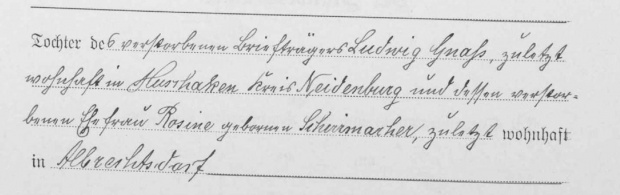 Tochter des verstorbenen Briefträgers Ludwig Gnaß, zuletzt
wohnhaft in Kreis Neidenburg und dessen verstor-
benen Ehefrau Rosine gebornen Schirrmacher, zuletzt wohnhaft
in Albrechtsdorf